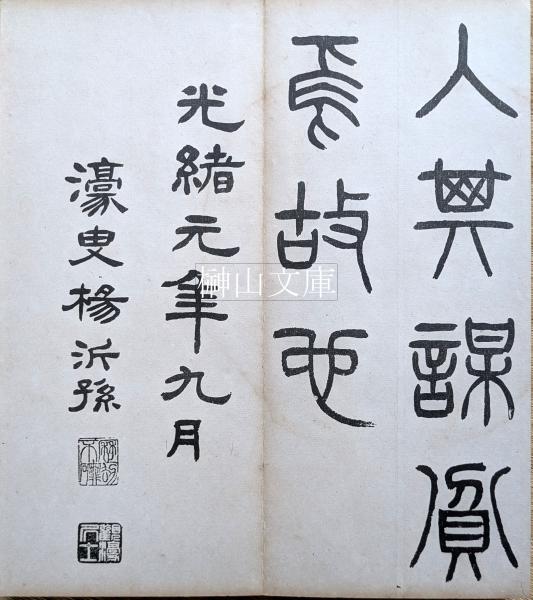 人其謀
焉故也
光緒元年九月
濠叟楊沂孫
觀濠居士
榊山文庫